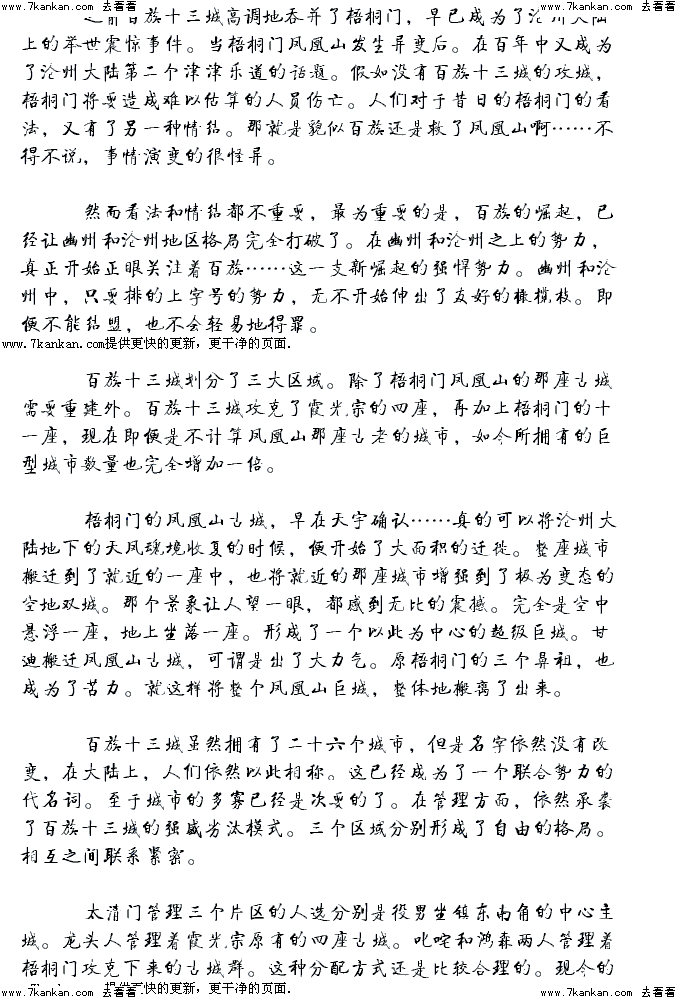 www.7kankan.com 去看看 www.7kankan.com 去看看 www.7kankan.com 去看看 www.7kankan.com 去看看
之前百族十三城高调地吞并了梧桐门，早已成为了沧州大陆
上的举世震惊事件。当梧桐门凤凰山发生异变后。在百年中又成为
了沧州大陆第二个津津乐道的话题。假如没有百族十三城的攻城，
梧桐门将要造成难以估算的人员伤亡。人们对于昔日的梧桐门的看
法，又有了另一种情结。那就是貌似百族还是救了凤凰山啊……不
得不说，事情演变的很怪异。
然而看法和情结都不重要，最为重要的是，百族的崛起，已
经让幽州和沧州地区格局完全打破了。在幽州和沧州之上的势力，
真正开始正眼关注着百族……这一支新崛起的强悍势力。幽州和沧
州中，只要排的上字号的势力，无不开始伸出了友好的橄榄枝。即
便不能结盟，也不会轻易地得罪。
www.7kankan.com提供更快的更新，更干净的页面.
百族十三城划分了三大区域。除了梧桐门凤凰山的那座古城
需要重建外。百族十三城攻克了霞光宗的四座，再加上梧桐门的十
一座，现在即便是不计算凤凰山那座古老的城市，如今所拥有的巨
型城市数量也完全增加一倍。
梧桐门的凤凰山古城，早在天宇确认……真的可以将沧州大
陆地下的天凤瑰境收复的时候，便开始了大面积的迁徙。整座城市
搬迁到了就近的一座中，也将就近的那座城市增强到了极为变态的
空地双城。那个景象让人望一眼，都感到无比的震撼。完全是空中
悬浮一座，地上坐落一座。形成了一个以此为中心的超级巨城。甘
迪搬迁凤凰山古城，可谓是出了大力气。原梧桐门的三个鼻祖，也
成为了苦力。就这样将整个凤凰山巨城，整体地搬离了出来。
百族十三城虽然拥有了二十六个城市，但是名字依然没有改
变，在大陆上，人们依然以此相称。这已经成为了一个联合势力的
代名词。至于城市的多寡已经是次要的了。在管理方面，依然承袭
了百族十三城的强盛劣汰模式。三个区域分别形成了自由的格局。
相互之间联系紧密。
太清门管理三个片区的人选分别是役男坐镇东南角的中心主
城。龙头人管理着霞光宗原有的四座古城。叱咤和鸿森两人管理着
梧桐门攻克下来的古城群。这种分配方式还是比较合理的。现今的
提供更快的更新，更干净的页面.
www.7kankan.com 去看看 www.7kankan.com 去看看 www.7kankan.com 去看看 www.7kankan.com 去看看